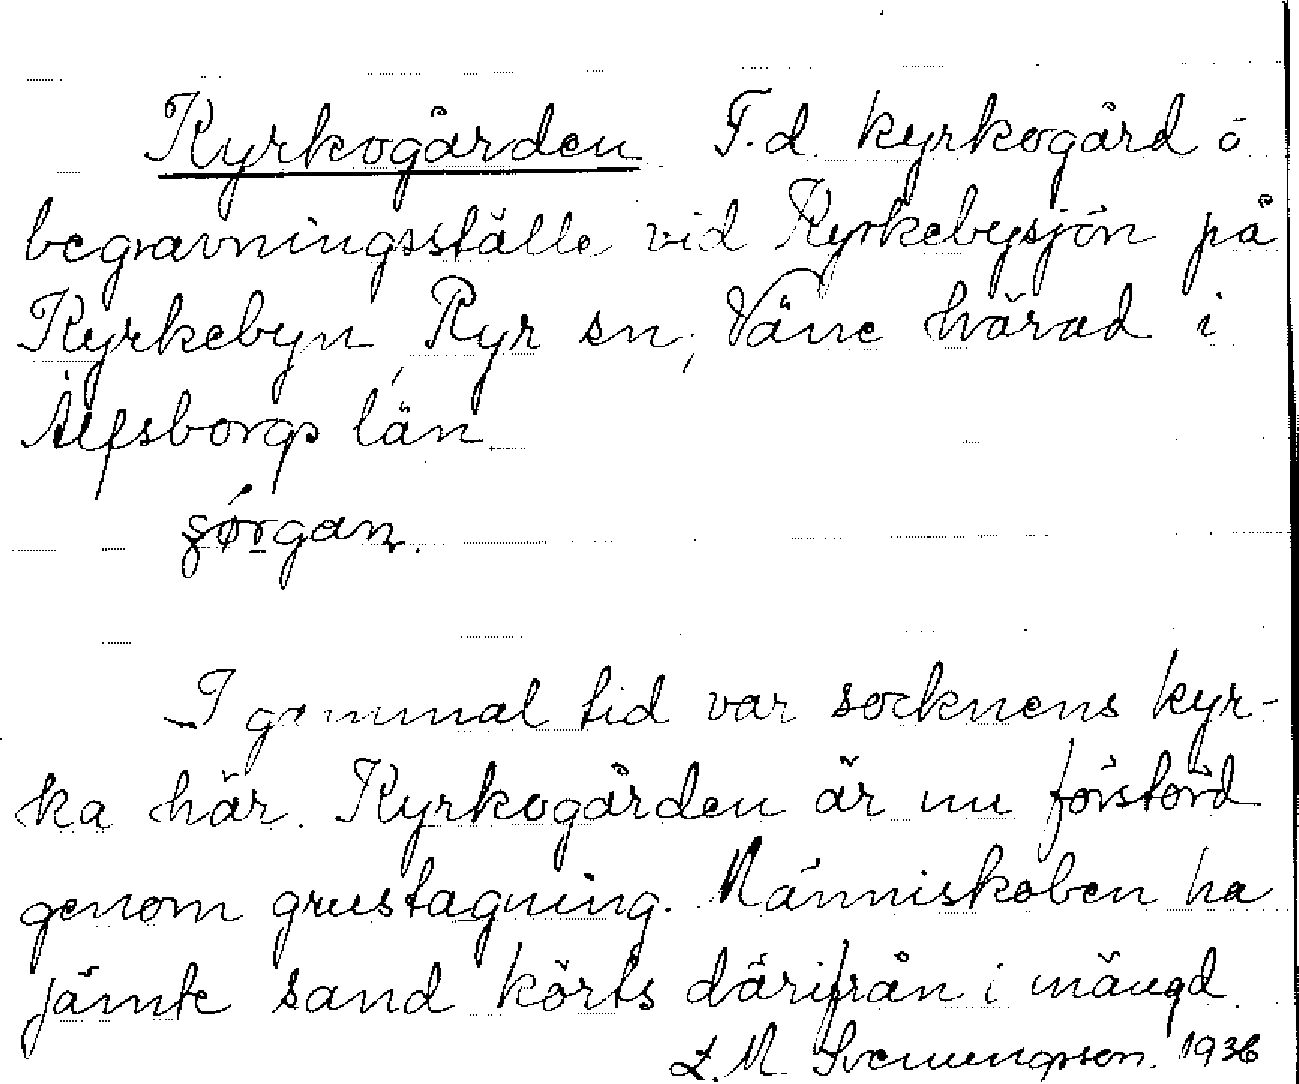 Kyrkogården F.d. kyrkogård o
begravningsställe vid Kyrkebysjön på
Kyrkebyn, Ryr sn, Väne härad i
Älfsborgs län.
I gammal tid var socknens kyr-
ka här. Kyrkogården är nu förstörd
genom grustagning. Människoben ha
jämte sand körts därifrån i mängd.
L. M. Svenungsson. 1936